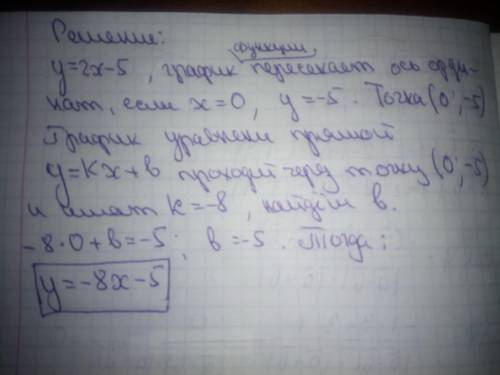 Решение:
функции
y=2x-5, график пересекает ось орди-
нат, если x=0, y=-5. Точка (0;-5)
График уравнени прямой
y=Kx+b проходит через точку (0;-5)
и имеет K=-8, найдём b.
-8·0+b=-5; b=-5. Тогда:
y=-8x-5